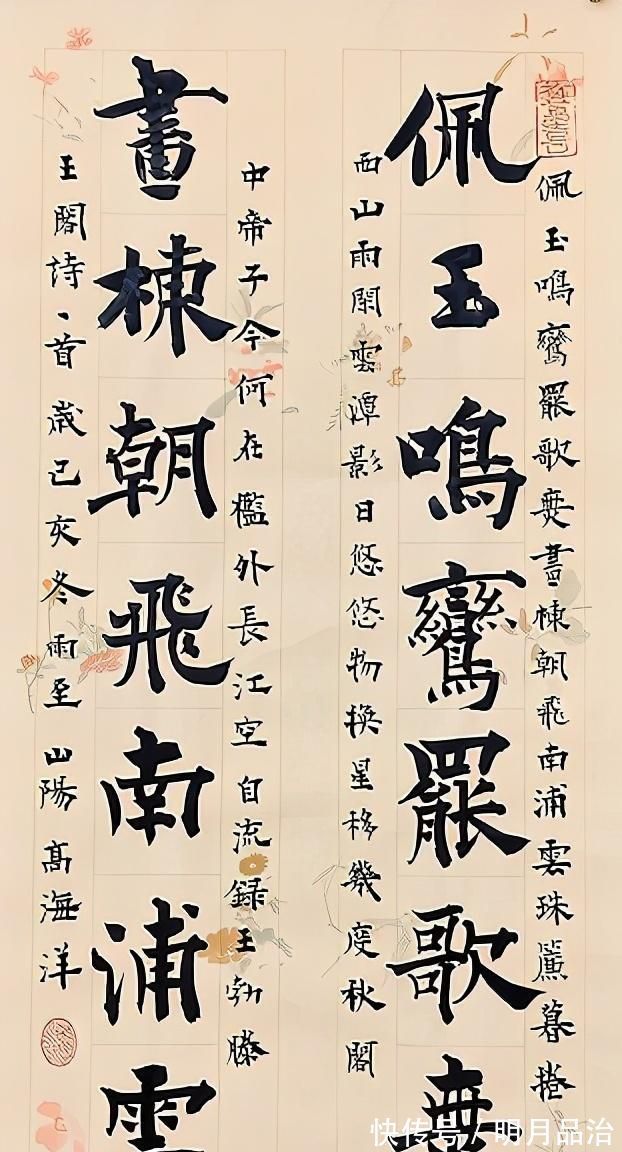 佩玉鳴鸞罷歌舞畫棟朝飛南浦雲珠簾暮捲
佩玉鳴鸞罷歌舞
西山雨閑雲潭影日悠悠物換星移幾度秋閣
中帝子今何在檻外長江空自流録王勃滕
畫棟朝飛南浦雲
王閣詩、首歲己亥冬雨至山陽髙海洋
快传号/明月品治